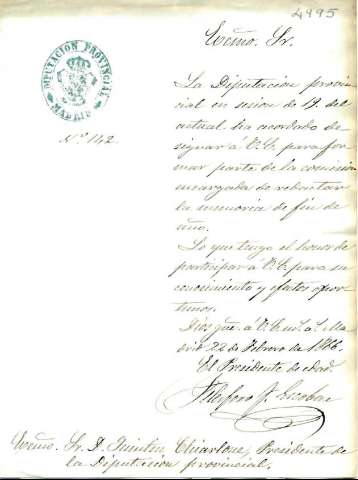 4495
Excmo. Sr.
DIPUTACION PROVINCIAL
MADRID
Nº 142
La Diputacion provin
cial en sesion de 19 del
actual ha acordado de
signar á V.E. para for
mar parte de la comision
encargada de redactar
la memoria de fin de
año.
Lo que tengo el honor de
participar á V.E. para su
conocimiento y efectos opor
tunos.
Dios gue. á V.E. m. a. Ma
drid 22 de Febrero de
El Presidente de edad.
Excmo. Sr. D. Quintin Chiarlone, Presidente de
la Diputacion provincial.